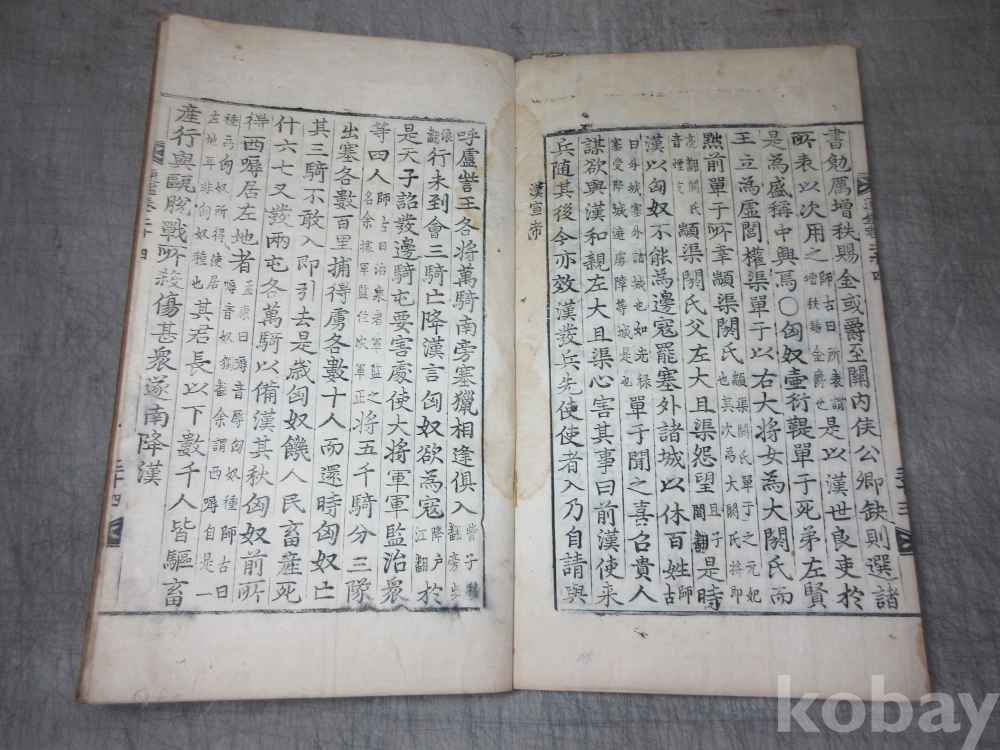 書勉厲增秩賜金或爵至關內侯公卿缺則選諸
所表以次用之師古曰所表謂增秩賜金爵也是以漢世良吏於
是為盛稱中興焉○匈奴壺衍鞮單于死弟左賢
王立為虛閭權渠單于以右大將女為大閼氏而
黜前單于所幸顓渠閼氏顓渠閼氏單于之元妃也其次為大閼氏
閼氏父左大且渠怨望是時
漢以匈奴不能為邊寇罷塞外諸城以休百姓師古
曰外城塞外諸城也如光祿塞受降城遮虜障等城是也單于聞之喜召貴人
謀欲與漢和親左大且渠心害其事曰前漢使來
兵隨其後今亦效漢發兵先使使者入乃自請與
漢宣帝
呼盧訾王各將萬騎南旁塞獵相逢俱入
行未到會三騎亡降漢言匈奴欲為寇於
是天子詔發邊騎屯要害處使大將軍軍監治衆
等四人師古曰治衆者軍監之名將五千騎分三隊
出塞各數百里捕得虜各數十人而還時匈奴亡
其三騎不敢入即引去是歲匈奴饑人民畜產死
什六七又發兩屯各萬騎以備漢其秋匈奴前所
得西嗕居左地者孟康曰嗕音辱匈奴種師古曰
種所匈奴所得使居左地耳非匈奴種也其君長以下數千人皆驅畜
產行與甌脫戰所殺傷甚衆遂南降漢
三十四